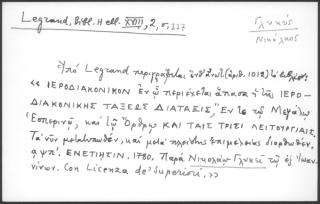 Legrand, Bibl. Hell. XVIII, 2, σ. 227
Γλυκύς
Νικόλαος
Ὑπό Legrand περιγράφεται ὑπ' ἀριθ. 1012)
« ΙΕΡΟΔΙΑΚΟΝΙΚΟΝ Ἐν ᾧ περιέχεται ἅπασα ἡ τῆς ΙΕΡΟ-
ΔΙΑΚΟΝΙΚΗΣ ΤΑΞΕΩΣ ΔΙΑΤΑΞΙΣ, Ἔν τε τῷ Μεγάλῳ
Ἑσπερινῷ, καί τῷ Ὄρθρῳ ΚΑΙ ΤΑΙΣ ΤΡΙΣΙ ΛΕΙΤΟΥΡΓΙΑΙΣ.
Τά νῦν μετατυπωθέν, καί μετά πλείστης ἐπιμελείας διορθωθέν.
αψπ'. ΕΝΕΤΙΗΣΙΝ, 1780. Παρά Νικολάῳ Γλυκεῖ τῷ ἐξ Ἰωαν-
νίνων. Con Licenza de' Superiori. »